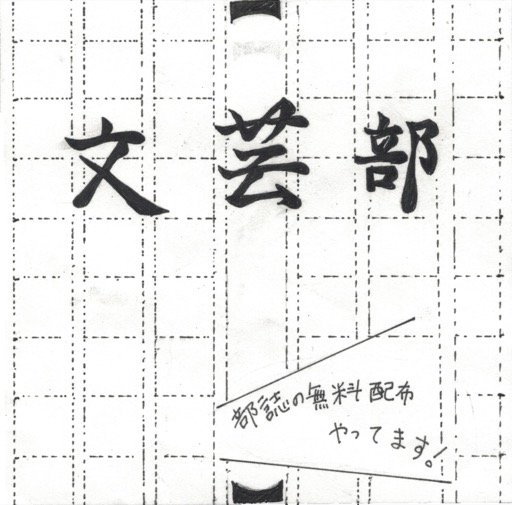 文芸部
部誌の無料配布
やってます!